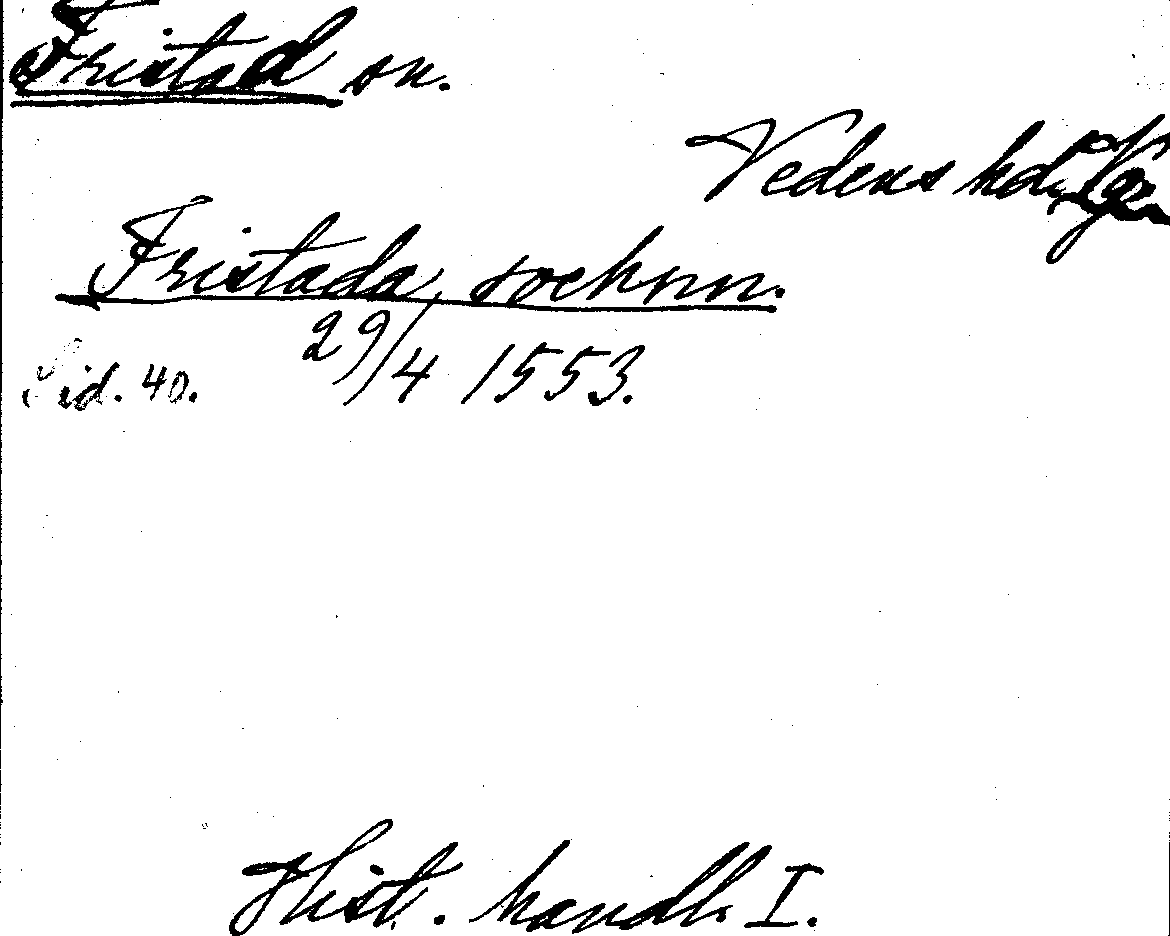 Fristad sn.
Vedens hd, Vg
Fristada, sochnn.
Sid. 40. 29/4 1553.
Hist. handl. I.